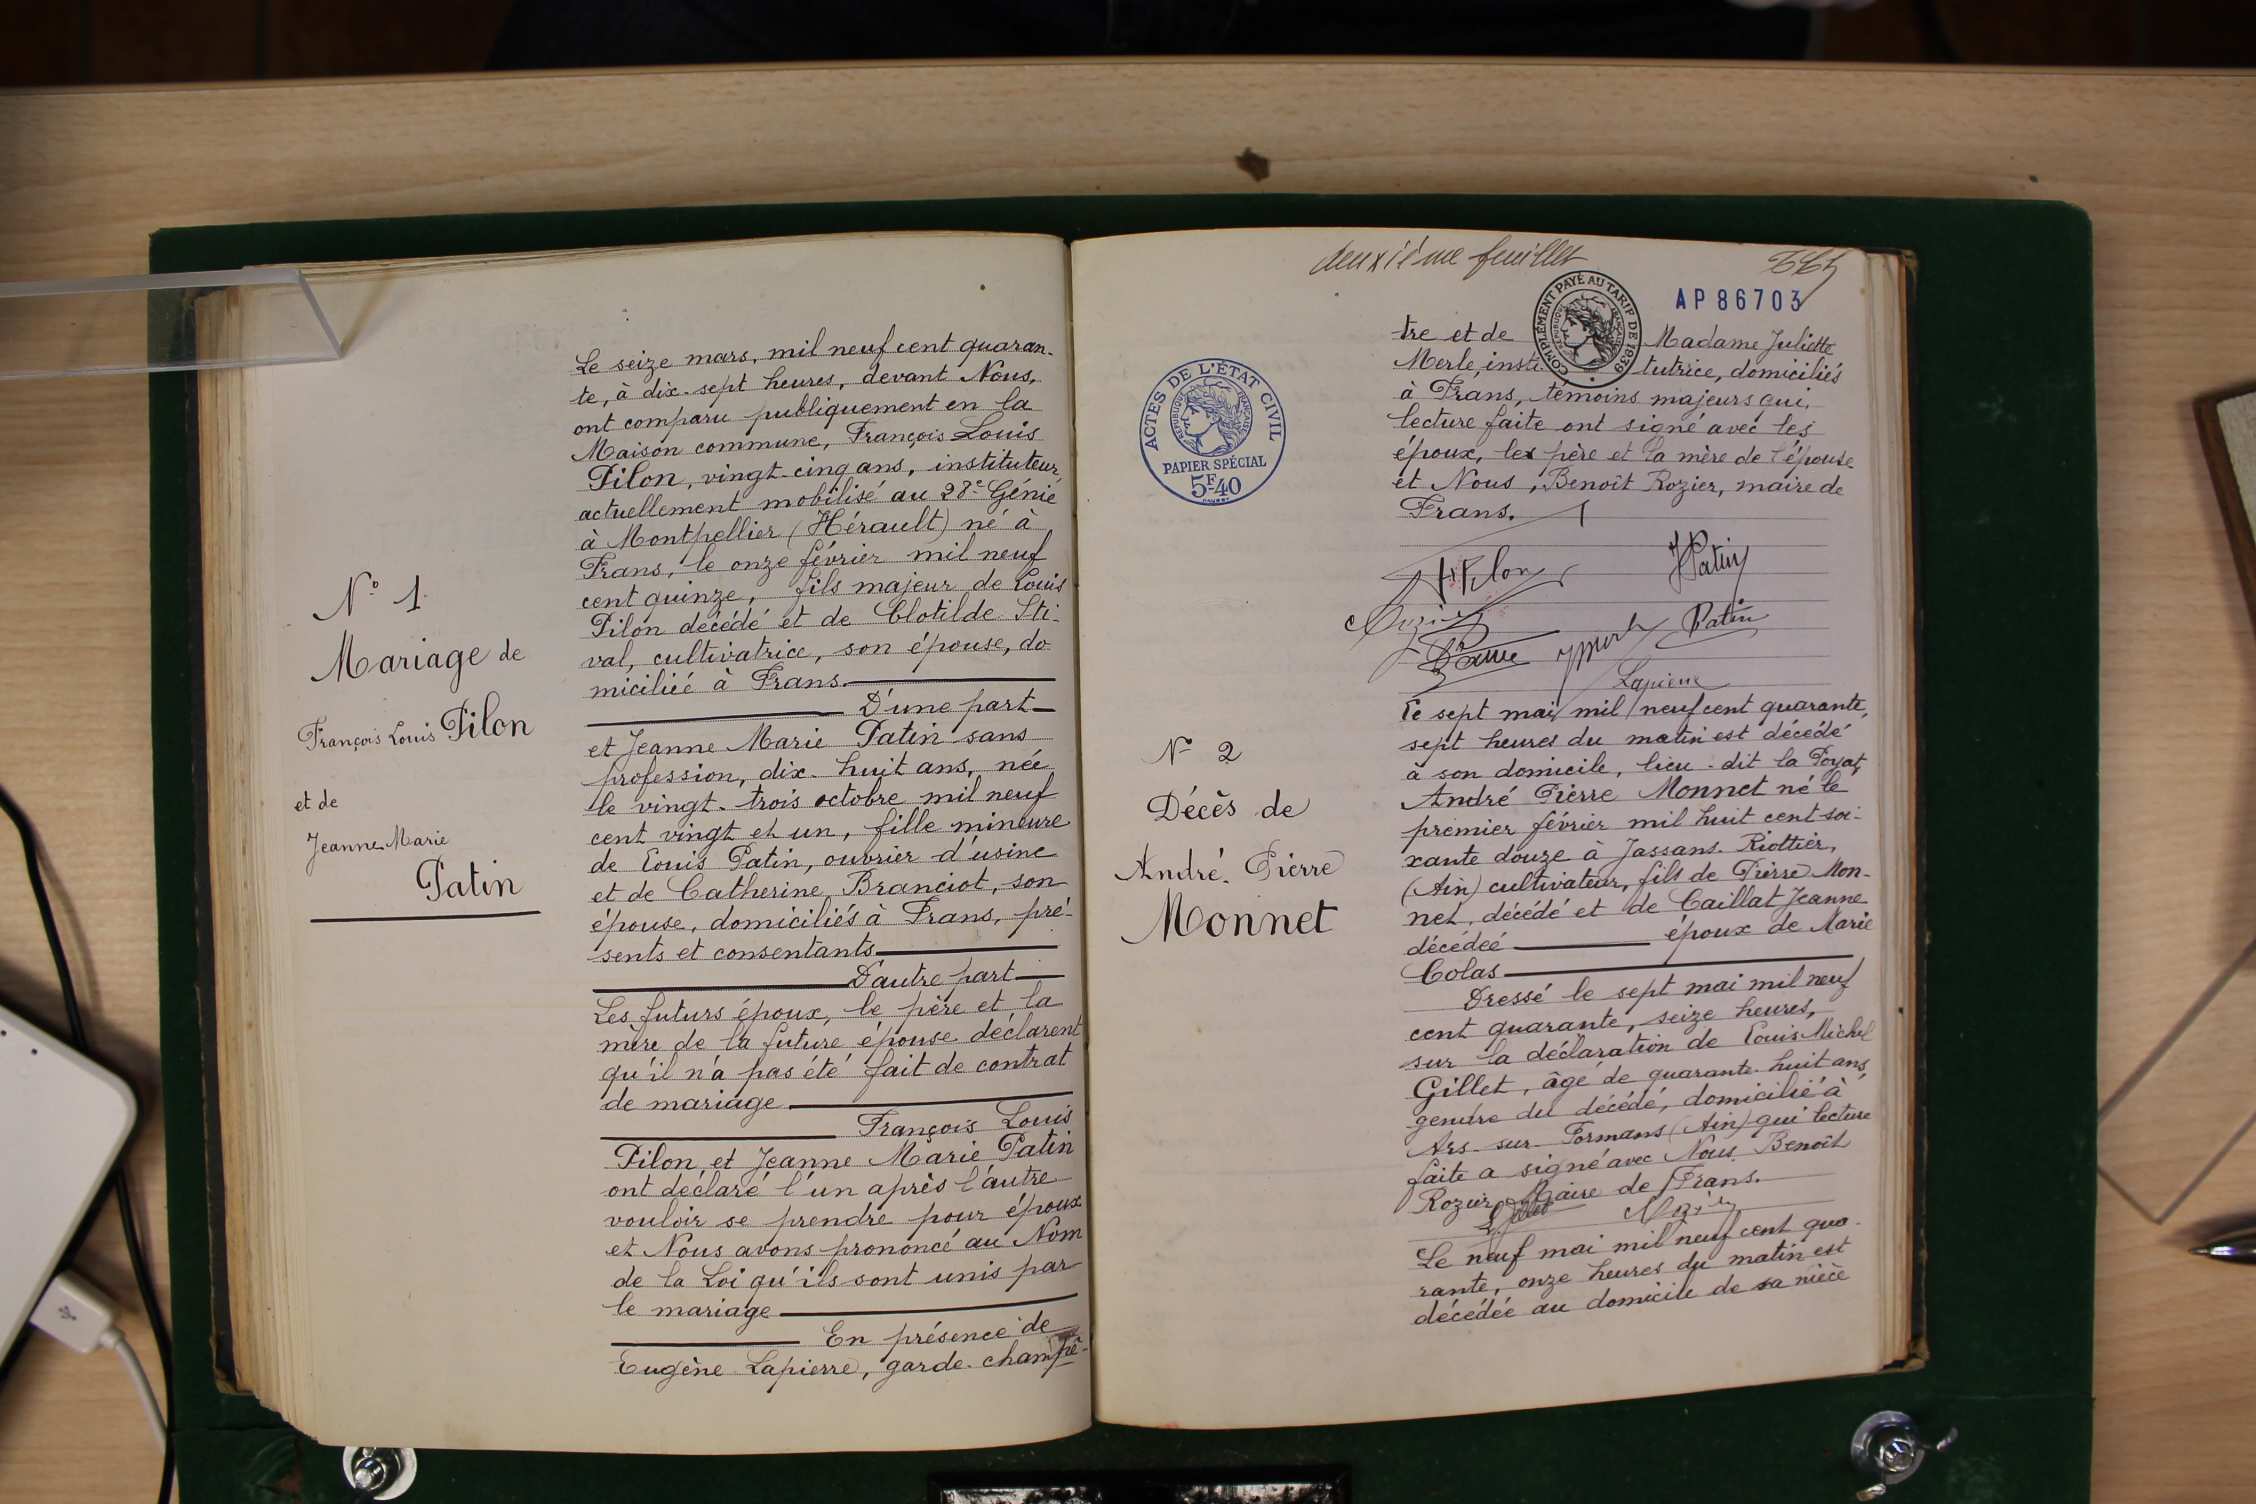 Le seize mars, mil neuf cent quaran-
te, à dix-sept heures, devant Nous,
ont comparu publiquement en la
Maison commune, François Louis
Pilon, vingt-cinq ans, instituteur,
actuellement mobilisé au 28e Génie
à Montpellier (Hérault) né à
Frans, le onze février mil neuf
cent quinze, fils majeur de Louis
Pilon décédé et de Clotilde Sti-
val, cultivatrice, son épouse, do-
miciliée à Frans.
D'une part
et Jeanne Marie Patin sans
profession, dix-huit ans, née
le vingt-trois octobre mil neuf
cent vingt et un, fille mineure
de Louis Patin, ouvrier d'usine
et de Catherine Branciot, son
épouse, domiciliés à Frans, pré-
sents et consentants
D'autre part
Les futurs époux, le père et la
mère de la future épouse déclarent
qu'il n'a pas été fait de contrat
de mariage
François Louis
Pilon et Jeanne Marie Patin
ont déclaré l'un après l'autre
vouloir se prendre pour époux
et Nous avons prononcé au Nom
de la Loi qu'ils sont unis par
le mariage
En présence de
Eugène Lapierre, garde-champê-
N° 1
Mariage de
François Louis Pilon
et de
Jeanne Marie
Patin
deuxième feuillet
AP 86703
COMPLÉMENT PAYÉ AU TARIF DE 1939
RÉPUBLIQUE FRANÇAISE
ACTES DE L'ÉTAT CIVIL
RÉPUBLIQUE FRANÇAISE
PAPIER SPÉCIAL
5F40
tre et de Madame Juliette
Merle, insti tutrice, domiciliés
à Frans, témoins majeurs qui,
lecture faite ont signé avec les
époux, les père et la mère de l'épouse
et Nous, Benoît Rozier, maire de
Frans.
Pilon
J Patin
Rozier
Patin
Lapierre
N° 2
Décès de
André-Pierre
Monnet
Le sept mai mil neuf cent quarante,
sept heures du matin est décédé
à son domicile, lieu-dit la Poyat,
André Pierre Monnet né le
premier février mil huit cent soi-
xante douze à Jassans-Riottier,
(Ain) cultivateur, fils de Pierre Mon-
net, décédé et de Caillat Jeanne
décédée époux de Marie
Colas
Dressé le sept mai mil neuf
cent quarante, seize heures,
sur la déclaration de Louis Michel
Gillet, âgé de quarante-huit ans,
gendre du décédé, domicilié à
Ars-sur-Formans (Ain) qui lecture
faite a signé avec Nous Benoît
Rozier, Maire de Frans.
Gillet
Rozier
Le neuf mai mil neuf cent qua-
rante, onze heures du matin est
décédée au domicile de sa nièce